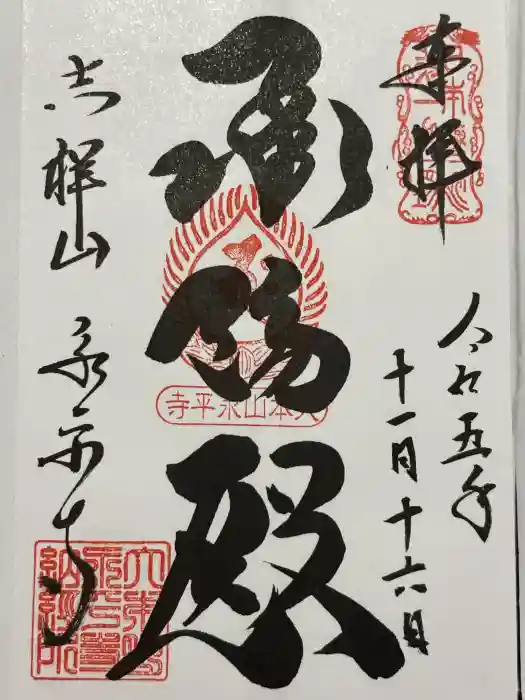 奉拝
令和五年
十一月十六日
承陽殿
大本山永平寺
吉祥山 永平寺